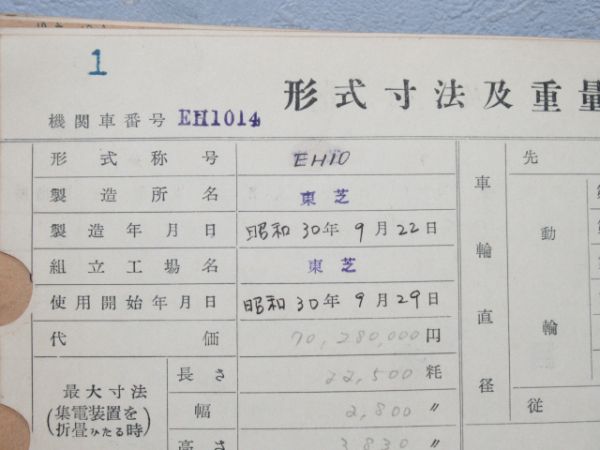 1
形式寸法及重量
機関車番号 EH1014
形式称号 EH10
製造所名 東芝
製造年月日 昭和30年9月22日
組立工場名 東芝
使用開始年月日 昭和30年9月29日
代価 70,280,000円
最大寸法
(集電装置を折畳みたる時)
長さ 22,500 粍
幅 2,800 〃
高さ 3,830 〃
車輪直径
先
動輪
従